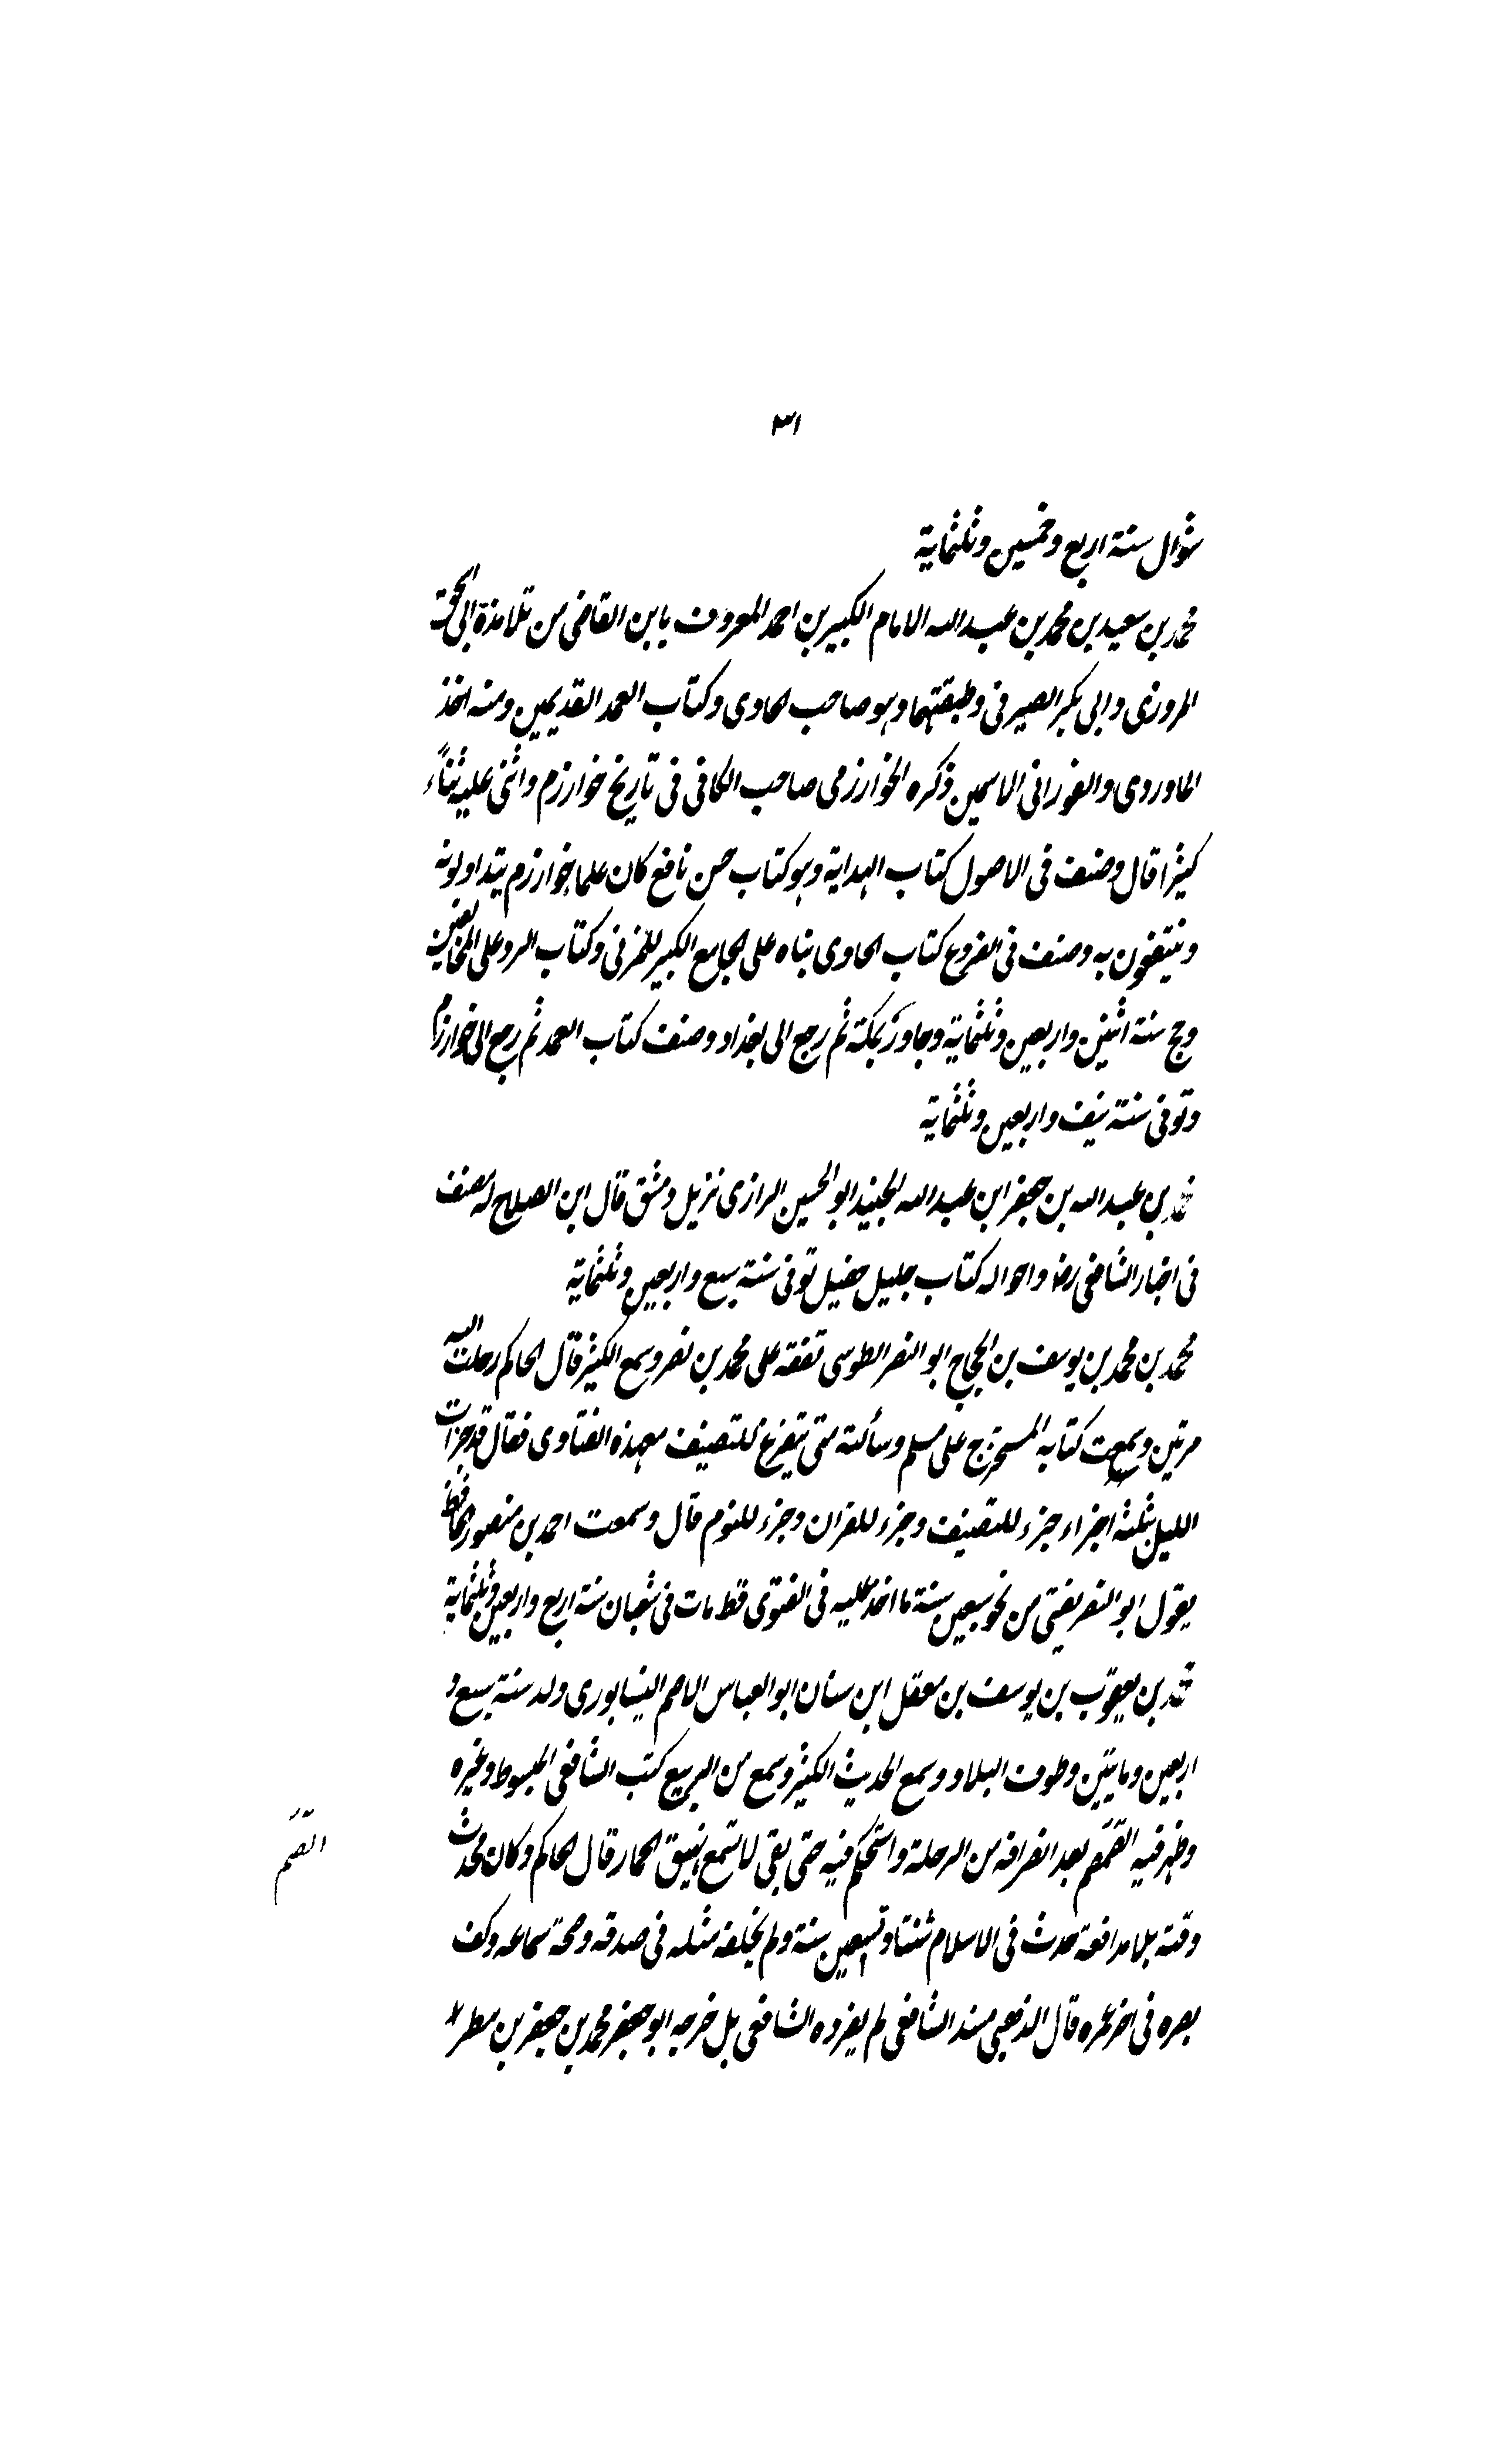 ٣١
شوال سنة اربع وخمسين وثلثماية
محمد بن سعيد بن محمد بن عبد الله الامام الكبير بن احمد المعروف بابن القاضى من تلامذة ابى اسحق
المروزى وابى بكر الصيرفى وطبقتهما وهو صاحب الحاوى وكتاب العمد القديمين ومنه اخذ
الماوردى والفورانى الاسمين ذكره الخوارزمى صاحب الكافى فى تاريخ خوارزم واثنى عليه ثناءً
كثيرا قال وصنف فى الاصول كتاب الهداية وهو كتاب حسن نافع كان علما خوارزم يتداولونه
وينتفعون به وصنف فى الفروع كتاب الحاوى بناه على الجامع الكبير للمزنى وكتاب الرد على المخالفين
وحج سنة اثنين واربعين وثلثماية وجاور بمكة ثم رجع الى بغداد وصنف كتاب العمد ثم رجع الى خوارزم
وتوفى سنة نيف واربعين وثلثماية
محمد بن عبد الله بن جعفر ابن عبد الله الجنيد ابو الحسين الرازى نزيل دمشق قال ابن الصلاح له مصنف
فى اخبار الشافعى رضه واحواله كتاب جليل حفيل توفى سنة سبع واربعين وثلثماية
محمد بن محمد بن يوسف بن الحجاج ابو النصر الطوسى تفقه على محمد بن نصر وسمع الكثير قال الحاكم رحلت اليه
مرتين وسمعت كتابه المستخرج على مسلم وسألته متى تتفرغ للتصنيف مع هذه الفتاوى فقال قد جزات
الليل ثلثة اجزاء جزء للتصنيف وجزء للقران وجزء للنوم قال وسمعت احمد بن منصور الحافظ
يقول ابو النصر يفتى من نحو سبعين سنة ما اخذ عليه فى الفتوى قط مات فى شعبان سنة اربع واربعين وثلثماية
محمد بن يعقوب بن يوسف بن معقل ابن سنان ابو العباس الاصم النيسابورى ولد سنة سبع و
اربعين ومايتين وطوف البلاد وسمع الحديث الكثير وسمع من الربيع كتب الشافعى المبسوط وغيره
وظهر فيه الصمم بعد انصرافه من الرحلة واستحكم فيه حتى بقى لا يسمع نهيق الحمار قال الحاكم وكان محدث
الصمم
وقته بلا مدافعة حدث فى الاسلام ستا وسبعين سنة ولم يخلف مثله فى صدقه وصحة سماعه وكف
بصره فى اخر عمره قال الذهبى مسند الشافعى لم يفرده الشافعى بل خرجه ابو جعفر محمد بن جعفر بن مطر